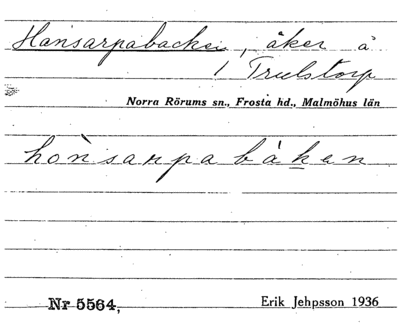 Hansarpabacken, åker å
1 Trulstorp
Norra Rörums sn., Frosta hd., Malmöhus län
hònsarpabáken
Nr 5564,
Erik Jehpsson 1936